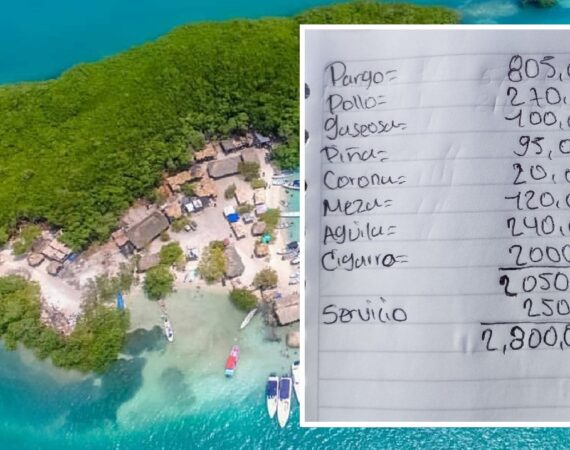 Pargo= 805,0
Pollo= 270,0
gaseosa= 100,0
Piña= 95,0
Corona= 20,0
Meza= 120,0
Aguila= 240,0
Cigarro= 2000
2050
Servicio 250
2,800,0